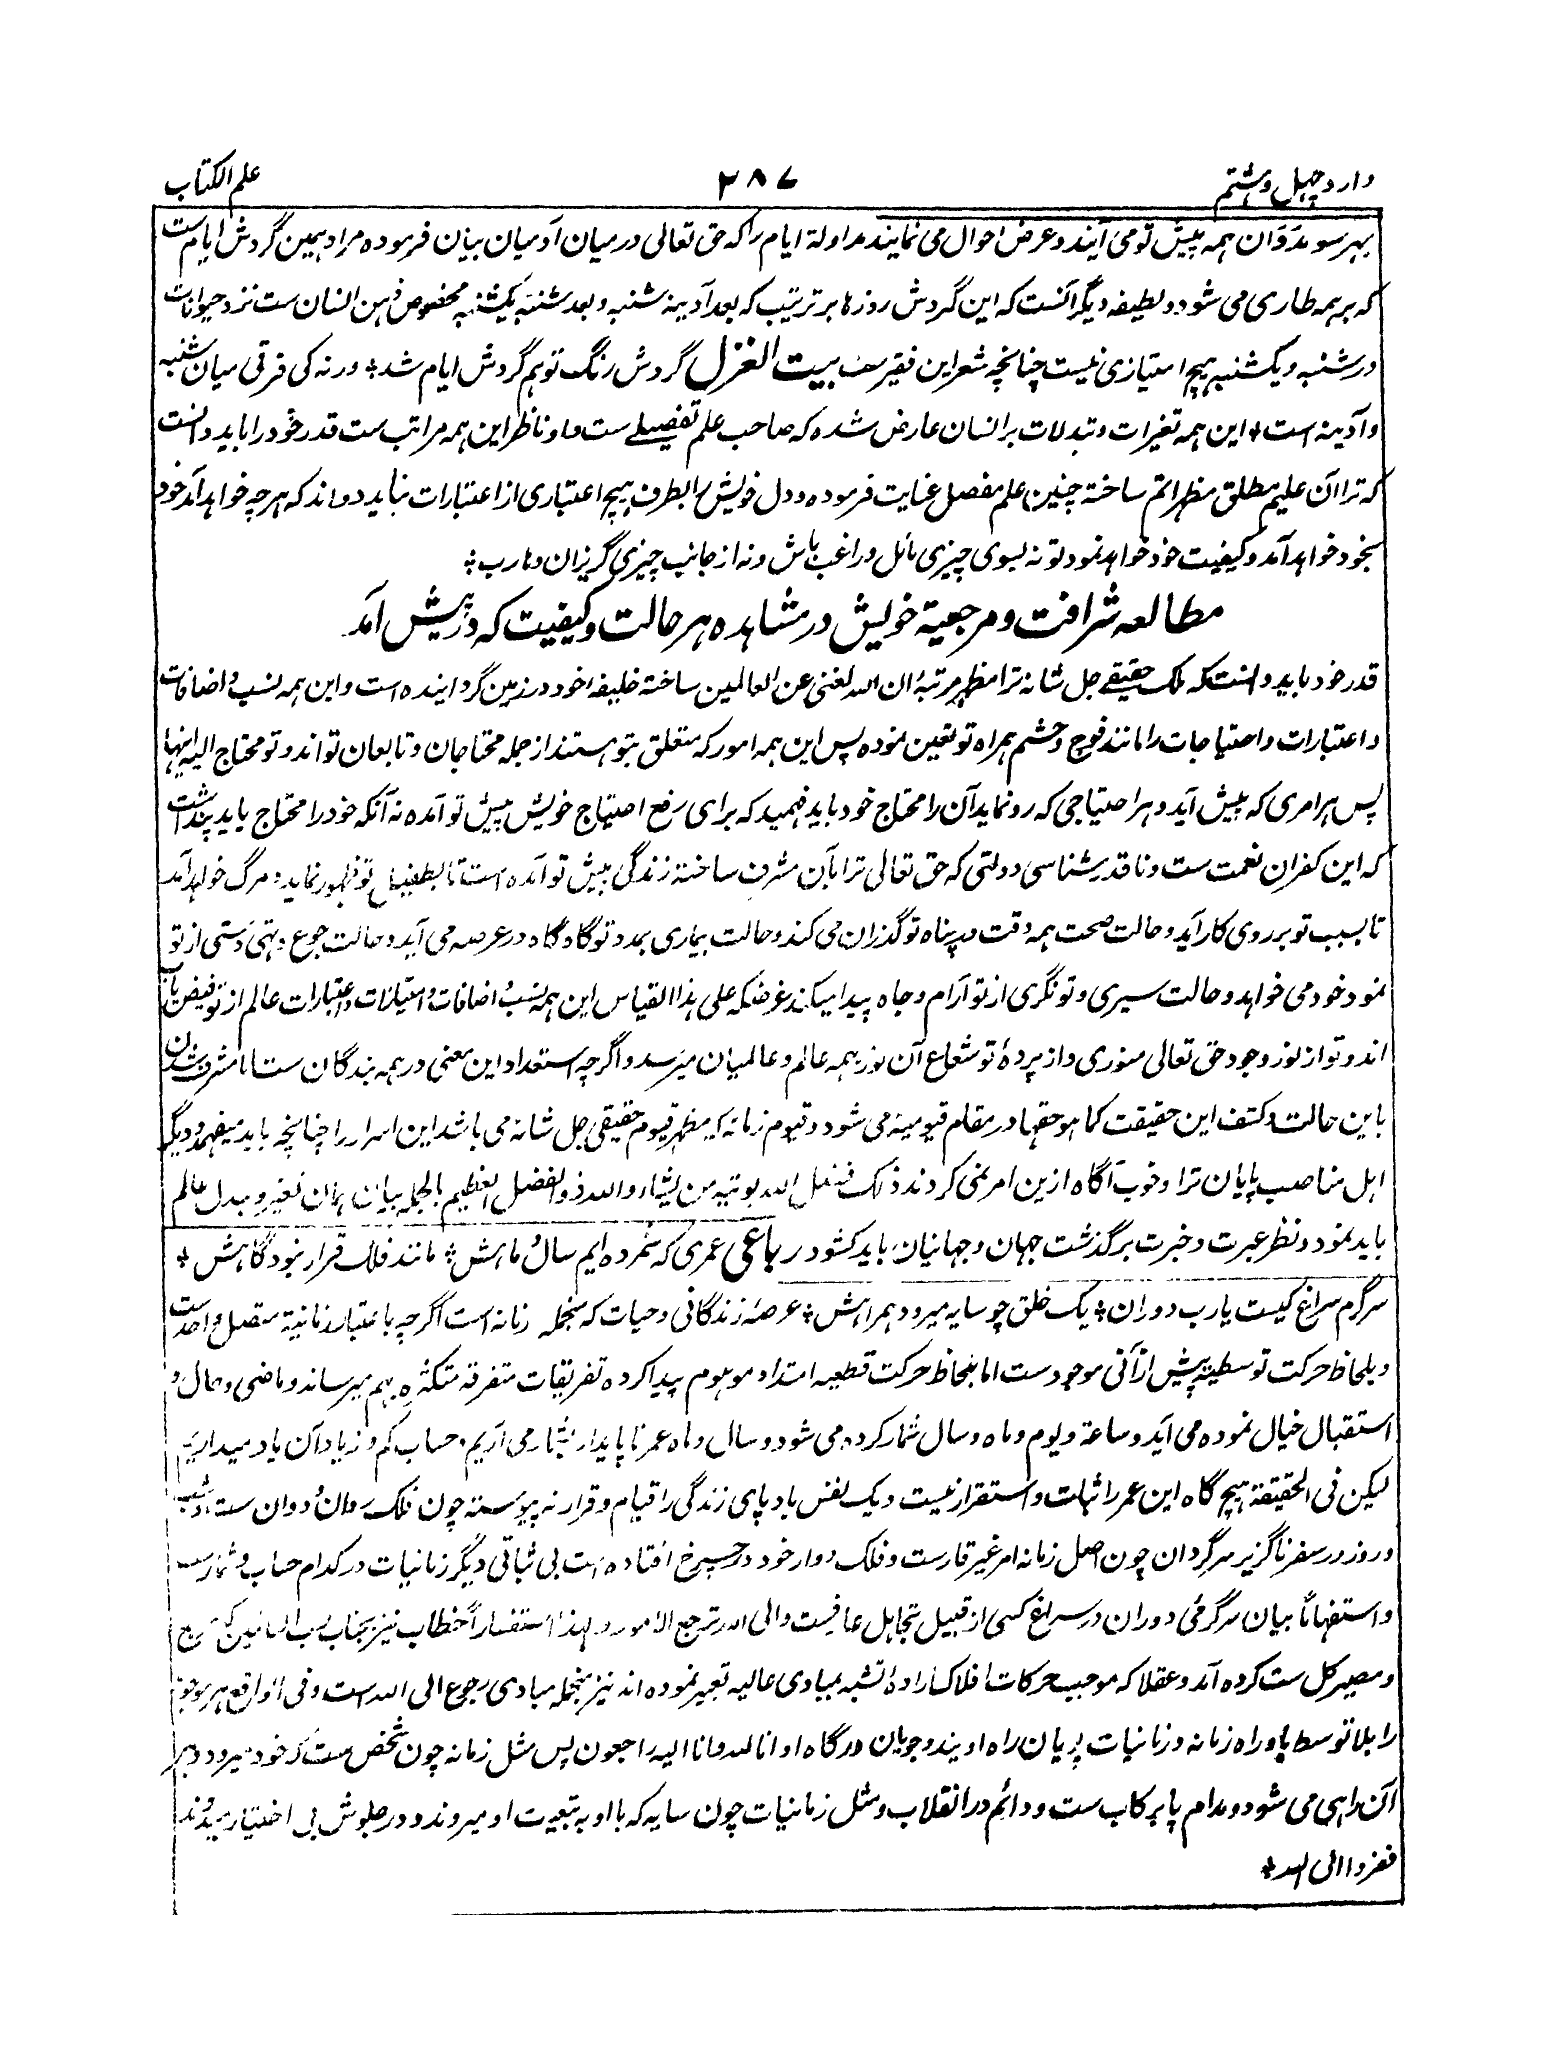 وارد چهل و هشتم ۲۸۷ علم الکتاب
بهر سو بدَوَان همه پیش تو می آیند و عرض احوال می نمایند مداولة ایام را که حق تعالی درمیان آدمیان بیان فرموده مراد همین گردش ایام ست
که بر همه طاری می شود و لطیفه دیگر آنست که این گردش روزها بر ترتیب که بعد آدینه شنبه و بعد شنبه یکشنبه مخصوص ذهن انسان ست نزد حیوانات
در شنبه و یکشنبه هیچ امتیازی نیست چنانچه شعر این فقیر ست بیت الغزل گردش رنگ توهم گردش ایام شد ٭ ورنه کی فرقی میان شنبه
و آدینه است ٭ این همه تغیرات و تبدلات بر انسان عارض شده که صاحب علم تفصیلے ست و او ناظر این همه مراتب ست قدر خود را باید دانست
که ترا آن علیم مطلق مظهر اتم ساخته چنین علم مفصل عنایت فرموده و دل خویش را بطرف هیچ اعتباری از اعتبارات نباید دواند که هرچه خواهد آمد خود
بخود خواهد آمد و کیفیت خود خواهد نمود تو نه بسوی چیزی مائل و راغب باش و نه از جانب چیزی گریزان و هارب ٭
مطالعه شرافت و مرجعیة خویش در مشاهده هر حالت و کیفیت که در پیش آمد
قدر خود باید دانست که ملک حقیقے جل شانه ترا مظهر مرتبهٔ ان الله لغنی عن العالمین ساخته خلیفهٔ خود در زمین گردانیده است و این همه نسب و اضافات
و اعتبارات و احتیاجات را مانند فوج و حشم همراه تو تعین نموده پس این همه امور که متعلق بتو هستند از جمله محتاجان و تابعان تو اند و تو محتاج الیه اینها
پس هر امری که پیش آید و هر احتیاجی که رو نماید آن را محتاج خود باید فهمید که برای رفع احتیاج خویش پیش تو آمده نه آنکه خود را محتاج باید پنداشت
که این کفران نعمت ست و ناقدرشناسی دولتی که حق تعالی ترا بآن مشرف ساخته زندگی پیش تو آمده است تا بطفیل تو ظهور نماید و مرگ خواهد آمد
تا بسبب تو بر روی کار آید و حالت صحت همه وقت در پناه تو گذران می کند و حالت بیماری بمدد تو گاه گاه در عرصه می آید و حالت جوع و تهی دستی از تو
نمود خود می خواهد و حالت سیری و تونگری از تو آرام و جاه پیدا میکند غرضکه علی هذا القیاس این همه نسب و اضافات و امتیازات و اعتبارات عالم از تو فیض یاب
اند و تو از نور وجود حق تعالی منوری و از پردهٔ تو شعاع آن نور بهمه عالم و عالمیان میرسد و اگرچه استعداد این معنی در همه بندگان ست اما مشرف شدن
باین حالت و کشف این حقیقت کما هو حقها در مقام قیومیة می شود و قیوم زمانه که مظهر قیوم حقیقی جل شانه می باشد این اسرار را چنانچه باید میفهمد و دیگر
اهل مناصب پایان تر او خوب آگاه ازین امر نمی کردند ذلک فضل الله یوتیه من یشاء والله ذو الفضل العظیم بالجمله بیان همان تغیر و تبدل عالم
باید نمود و نظر عبرت و خبرت بر گذشت جهان و جهانیان باید کشود رباعی عمری که شمرده ایم سال و ماهش ٭ مانند فلک قرار نبود گاهش ٭
سرگرم سراغ کیست یا رب دوران ٭ یک خلق چو سایه میرود همراهش ٭ عرصهٔ زندگانی و حیات که منجمله زمانه است اگرچه باعتبار زمانیة متصل واحد ست
و بلحاظ حرکت توسطیه پیش از آنی موجود ست اما بلحاظ حرکت قطعیه امتداد موهوم پیدا کرده تفریقات متفرقه متکثره بهم میرساند و ماضی و حال و
استقبال خیال نموده می آید و ساعة و یوم و ماه و سال شمار کرده می شود و سال و ماه عمر ناپایدار بشمار می آریم و حساب کم و زیاد آن یاد میداریم
لیکن فی الحقیقة هیچ گاه این عمر را ثبات و استقرار نیست و یک نفس بادپای زندگی را قیام و قرار نه پیوسته چون فلک روان و دوان ست و شب
و روز در سفر ناگزیر سرگردان چون اصل زمانه امر غیر قار ست و فلک دوار خود در چرخ افتاده است بی ثباتی دیگر زمانیات در کدام حساب و شمار ست
و استفهاماً بیان سرگرمی دوران در سراغ کسی از قبیل تجاهل عارف ست و الی الله ترجع الامور و لهذا استفساراً خطاب نیز بجناب رب العالمین که مرجع
و مصیر کل ست کرده آمد و عقلا که موجب حرکات افلاک ارادهٔ تشبه بمبادی عالیه تعبیر نموده اند نیز بنجمله مبادی رجوع الی الله است و فی الواقع هر موجود
را بلا توسط یا و راه زمانه و زمانیات پریان راه اویند و جویان درگاه او انا لله و انا الیه راجعون پس مثل زمانه چون شخص ست که خود میرود و هر
آن راهی می شود و مدام پا برکاب ست و دائم در انقلاب و مثل زمانیات چون سایه که با او به تبعیت او میروند و در جلوش بی اختیار میدوند
ففروا الی الله ٭